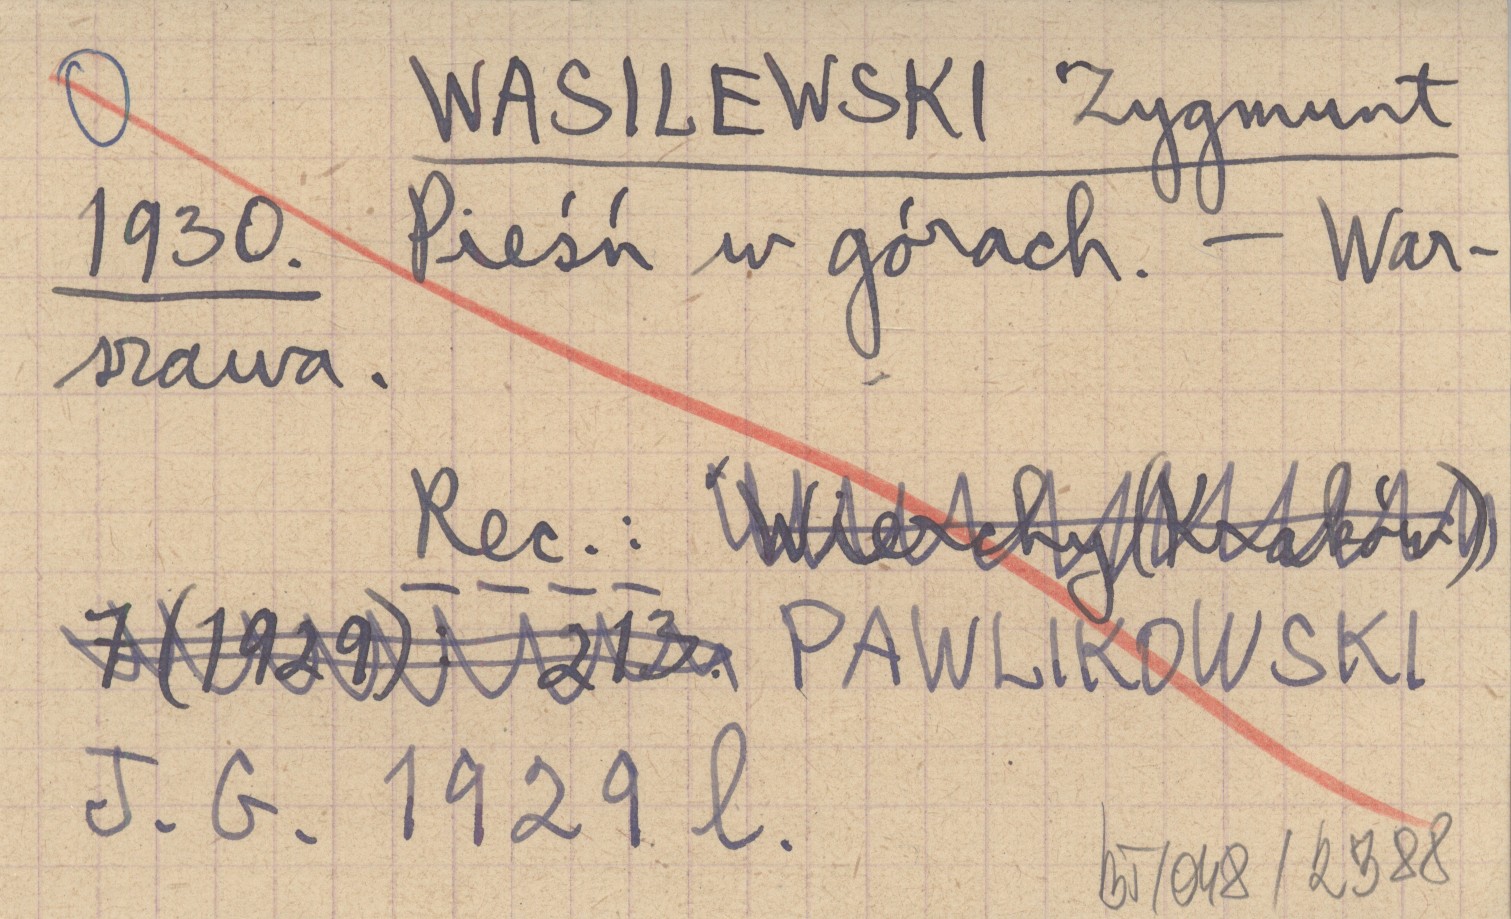 WASILEWSKI Zygmunt
1930. Pieśń w górach. — War-
szawa.
Rec.: Wierchy (Kraków)
7 (1929): 213. PAWLIKOWSKI
J. G. 1929 l.
BT/048/2388